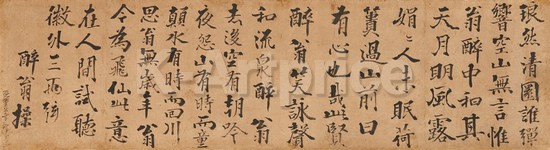 琅然清圜誰彈
響空山無言惟
翁醉中和其
天月明風露
娟〻人未眠荷
蕢過山前曰
有心也哉此賢
醉翁笑詠聲
和流泉醉翁
去後空有朝吟
夜怨山有時而童
顛水有時而回川
思翁無歲年翁
今為飛仙此意
在人間試聽
徽外三兩弦
醉翁操
K-Artprice